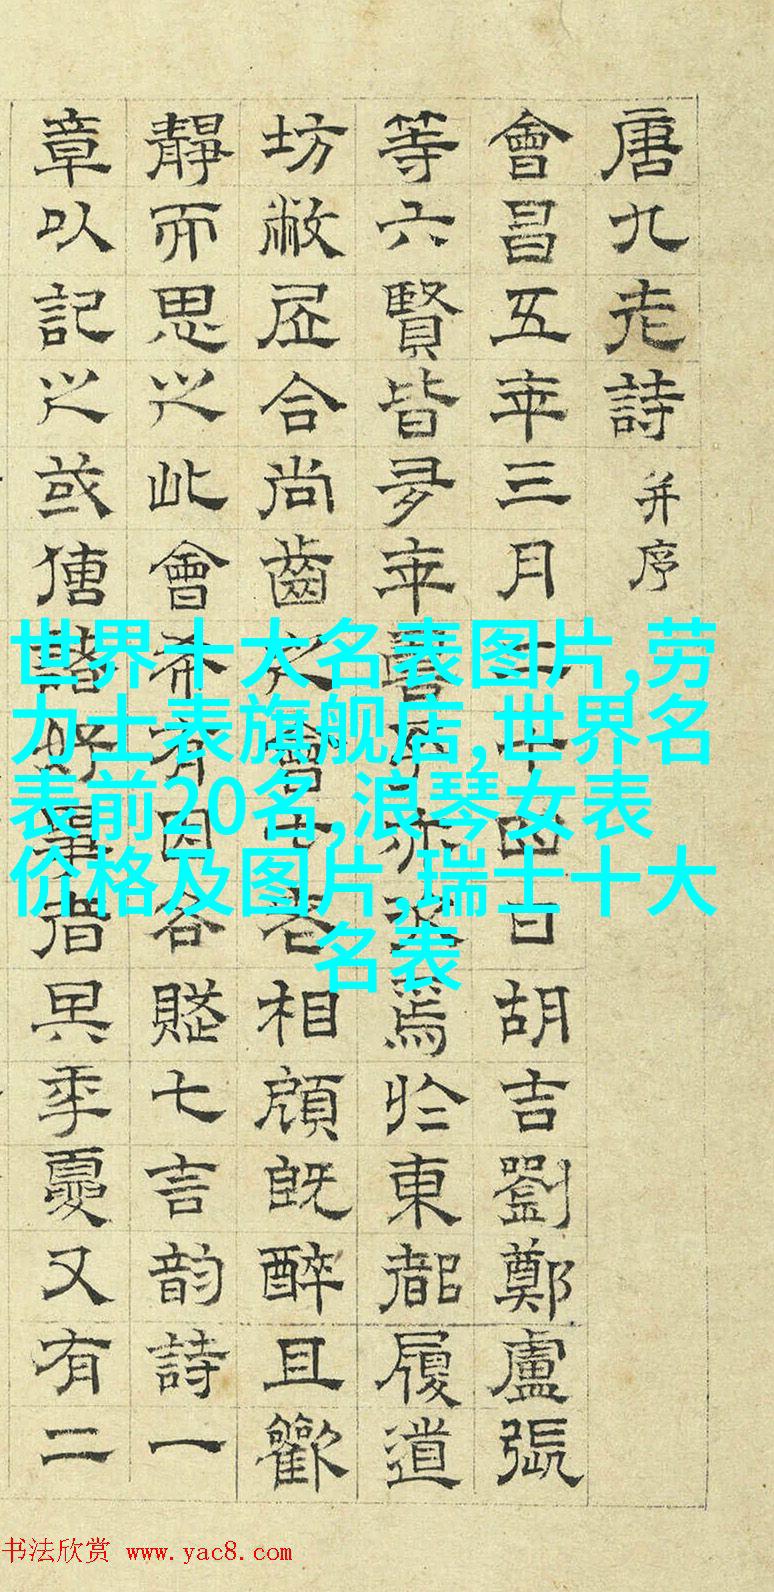 唐九老詩并序
會昌五年三月二十四日胡吉劉鄭盧張
等六賢皆多年壽予亦次焉於東都履道
坊敝居合尚齒之會七老相顧既醉且歡
靜而思之此會希有因各賦七言韵詩一
章以記之或傳諸好事者其年夏又有二
世界十大名表图片,劳
力士表旗舰店,世界名
表前20名,浪琴女表
价格及图片,瑞士十大
名表
书法欣赏 www.yac8.com